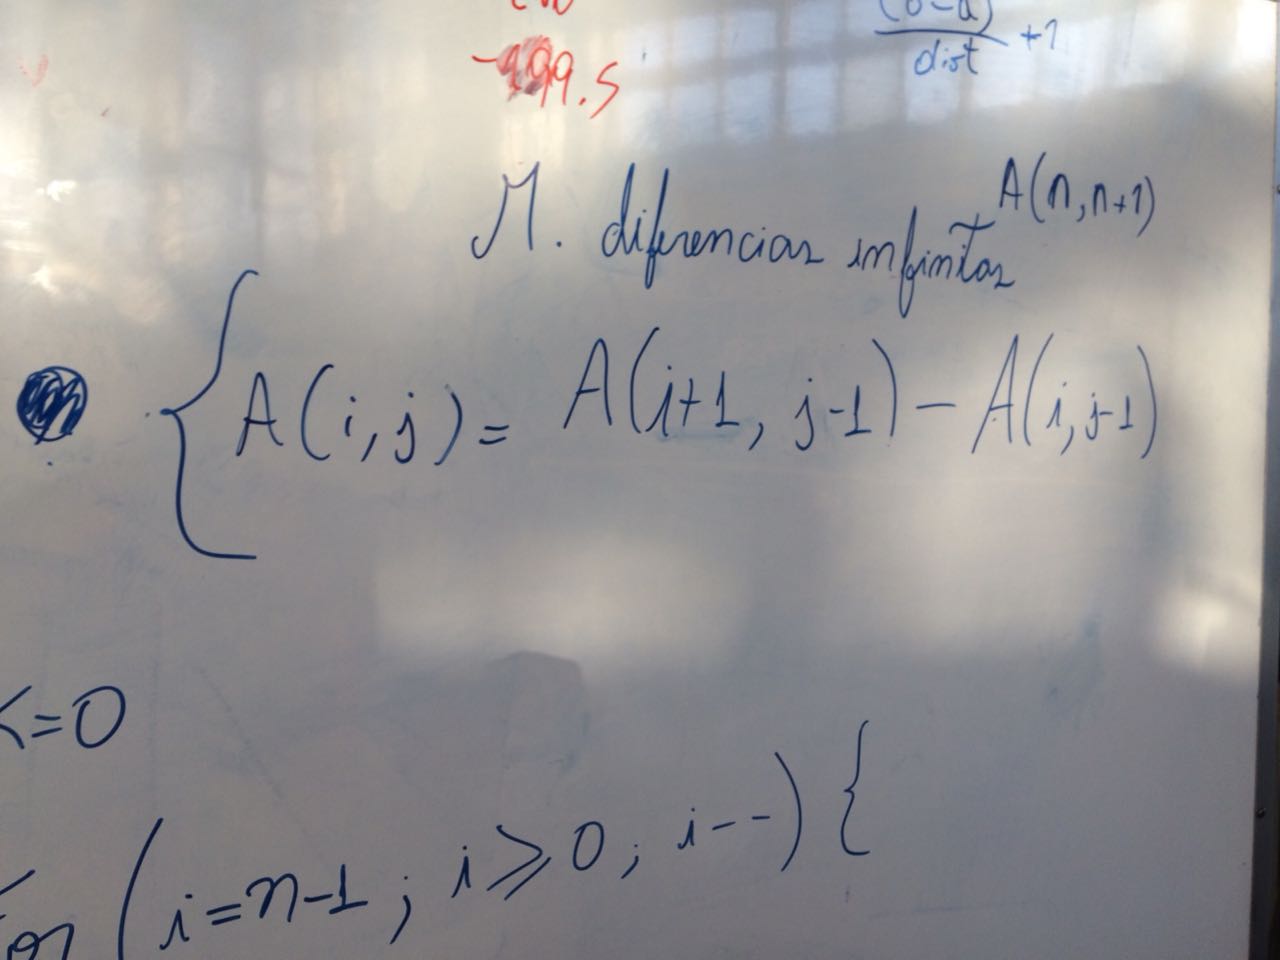 -199.5
(b-a)
dist +1
M. diferencias infinitas A(n,n+1)
A(i,j) = A(i+1, j-1) - A(i,j-1)
<=0
for (i=n-1; i⩾0; i--) {